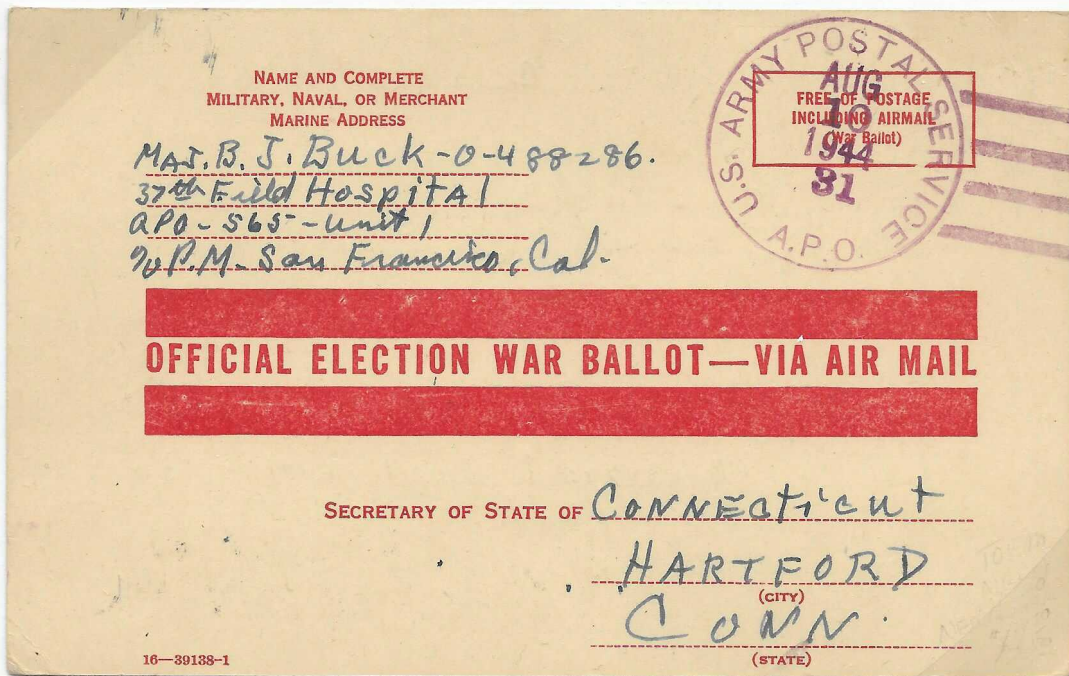 NAME AND COMPLETE
MILITARY, NAVAL, OR MERCHANT
MARINE ADDRESS
MAJ. B. J. Buck - O-488286.
37th Field Hospital
APO - 565 - Unit 1
c/o P.M. San Francisco, Cal.
U.S. ARMY POSTAL SERVICE
A.P.O.
AUG
10
1944
31
FREE OF POSTAGE
INCLUDING AIRMAIL
(War Ballot)
OFFICIAL ELECTION WAR BALLOT—VIA AIR MAIL
SECRETARY OF STATE OF CONNECticut
HARTFORD
(CITY)
CONN.
(STATE)
16—39138-1